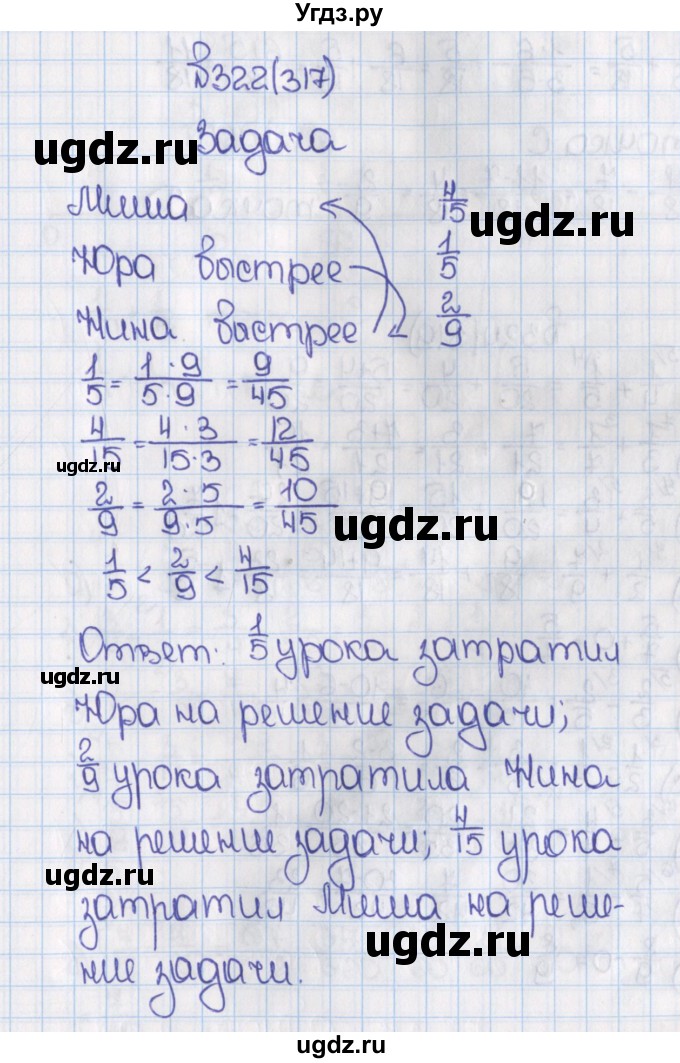 Угдз.ру
№322(317)
ugdz.ru Задача
Миша 4/15
Юра быстрее 1/5
Нина быстрее 2/9
1/5 = 1·9/5·9 = 9/45
4/15 = 4·3/15·3 = 12/45
ugdz.ru
2/9 = 2·5/9·5 = 10/45
ugdz.ru
1/5 < 2/9 < 4/15
Ответ: 1/5 урока затратил
ugdz.ru
Юра на решение задачи;
2/9 урока затратила Нина
на решение задачи; 4/15 урока
затратил Миша на реше-
ugdz.ru
ние задачи.
ugdz.ru